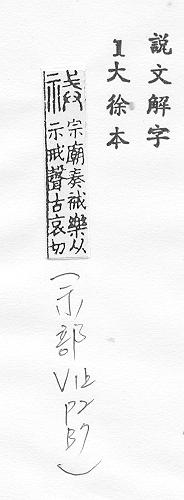 説文解字
1大徐本
祴
宗廟奏祴樂从
示戒聲古哀切
(示部 V1上 P2 B7)